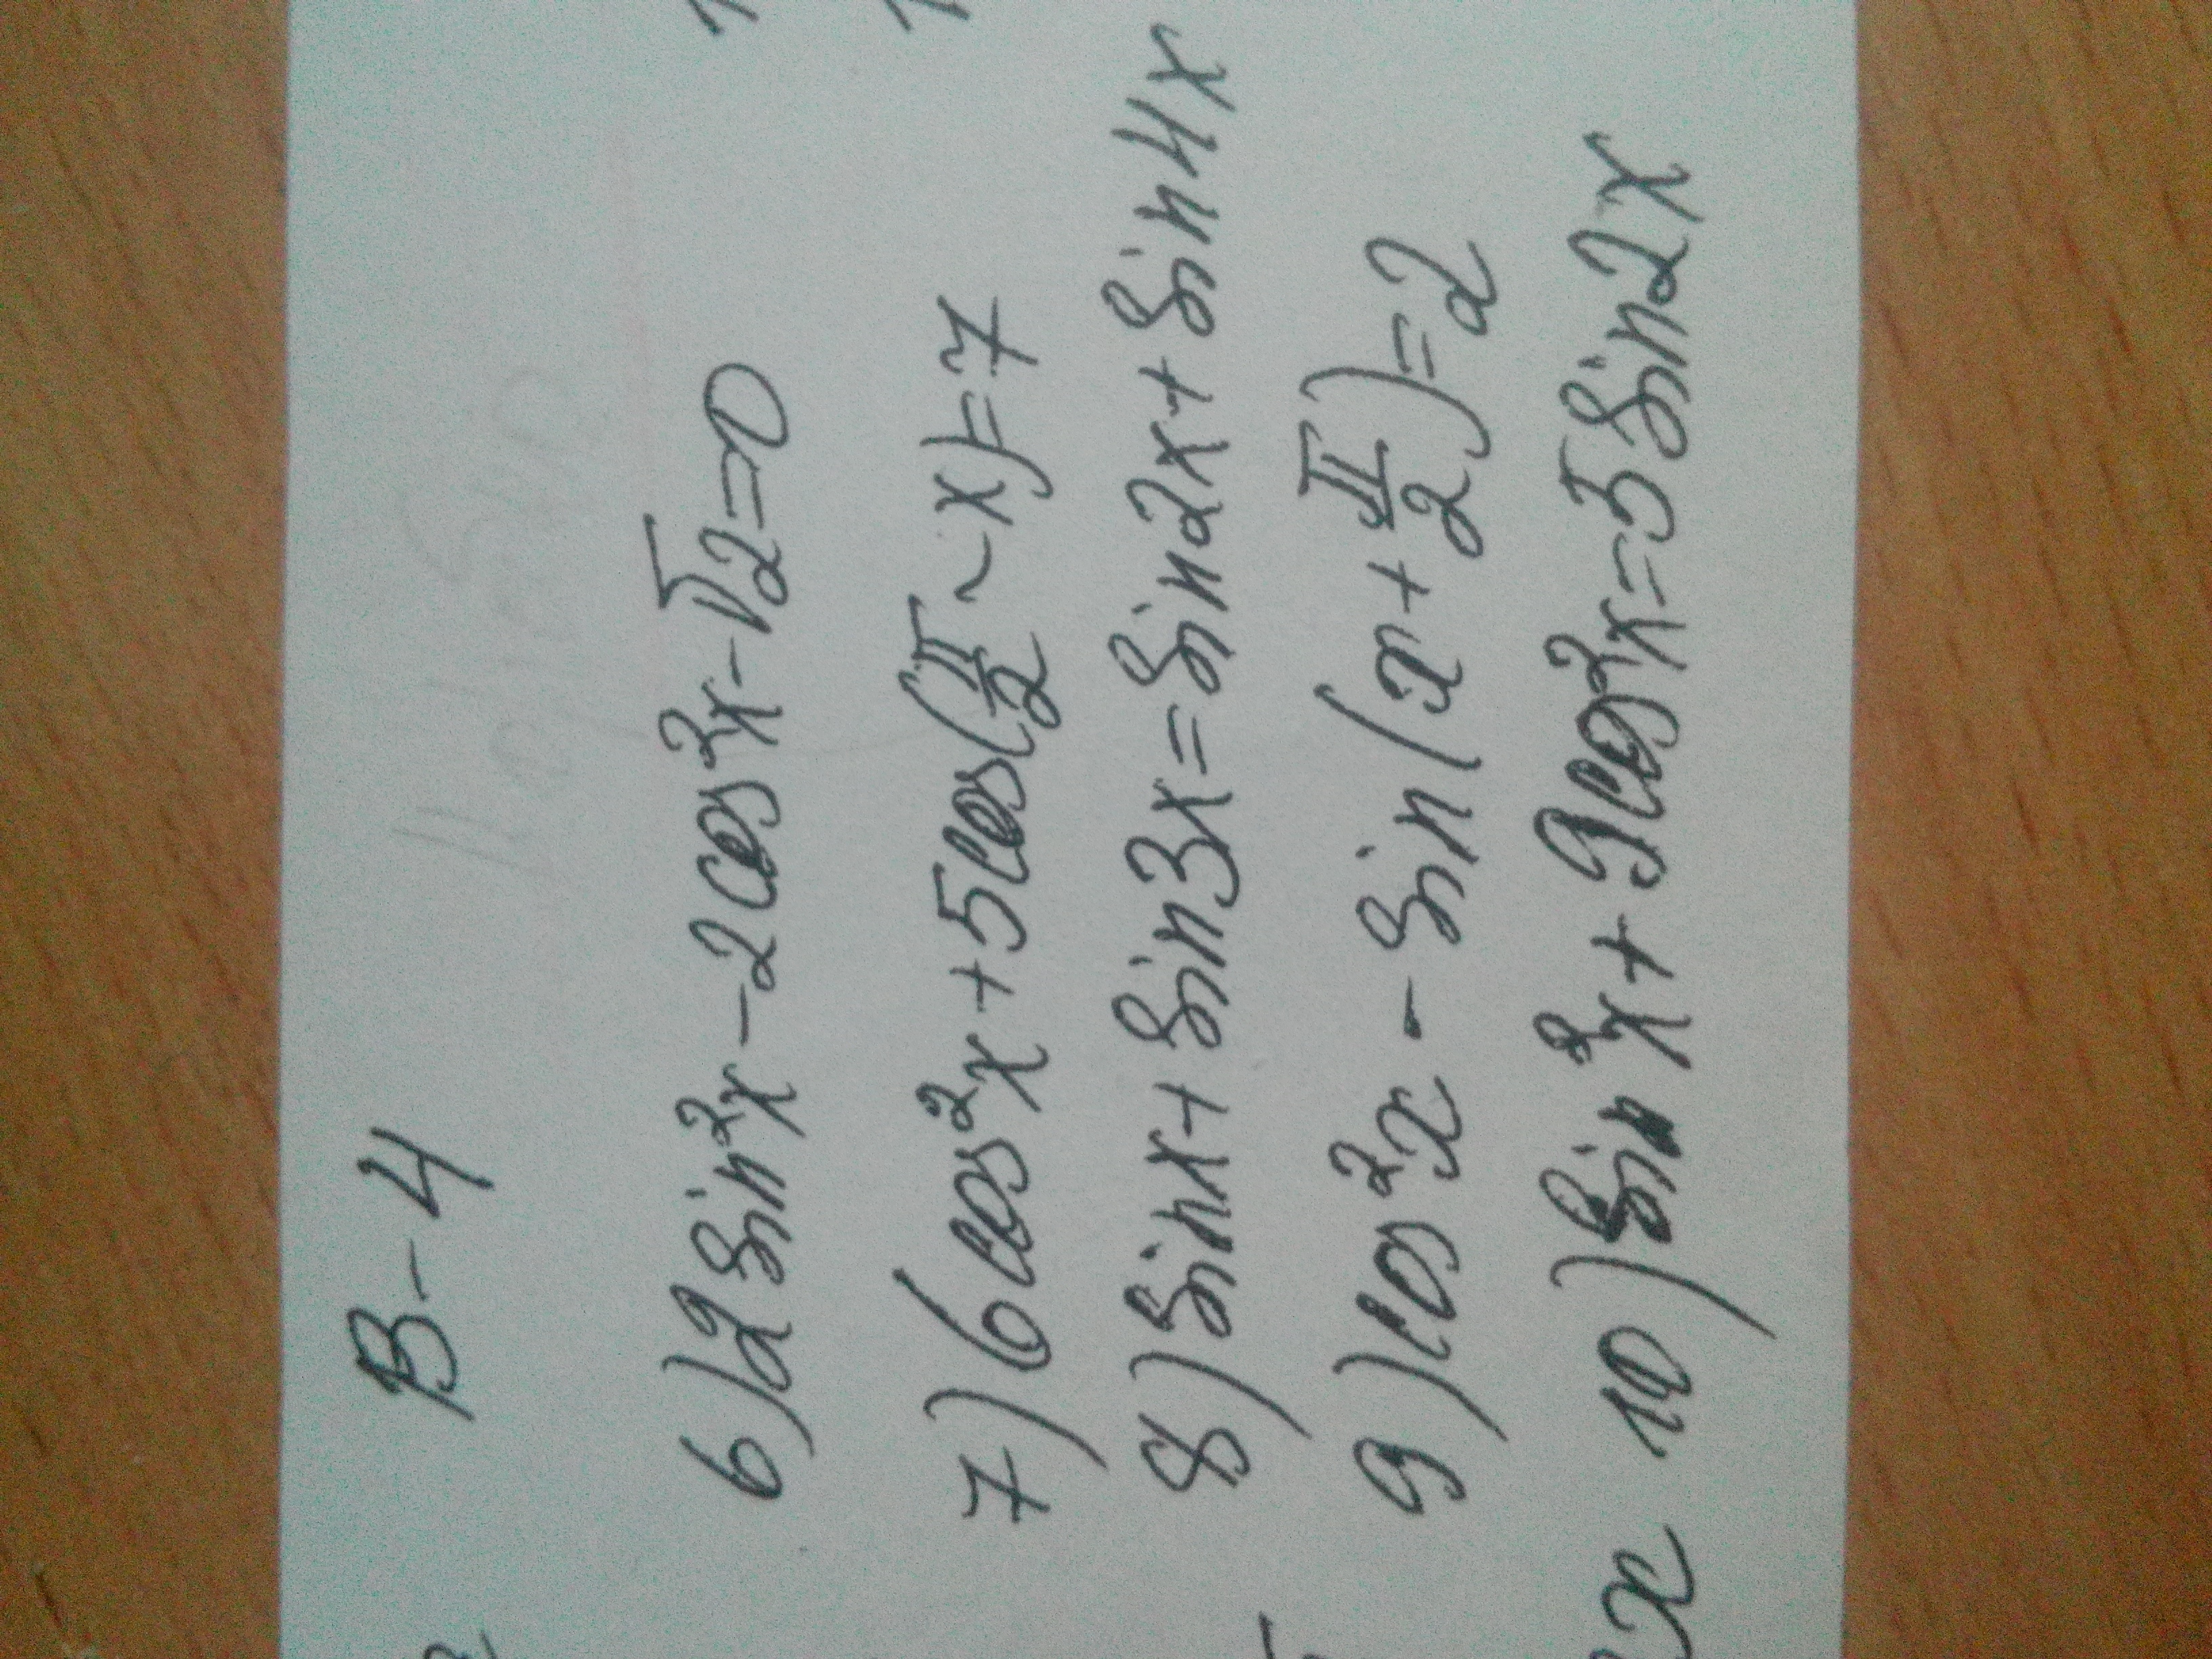 В-4
6) 2 sin²x - 2 cos²x - √2 = 0
7) 6 cos²x + 5 cos(π/2 - x) = 7
8) sin x + sin 3x = sin 2x + sin 4x
9) cos²x - sin(x + π/2) = 2
x 10) sin²x + 9 cos²x = 5 sin 2x